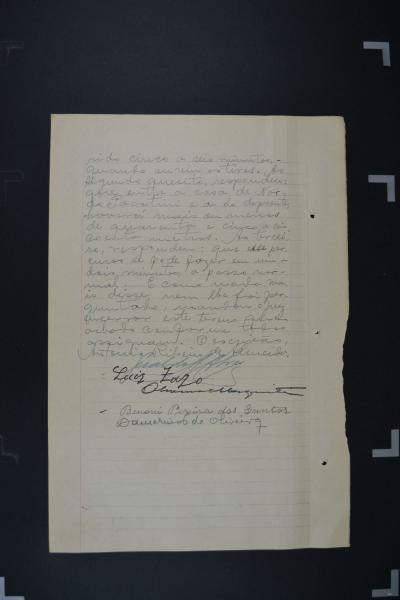 rido cinco a seis minutos,
quando ouviu os tiros. Ao
segundo quesito, respondeu:
que entre a casa de
e a do depoente,
haverá mais ou menos
de quarenta e cinco a
metros. Ao tercei-
ro, respondeu: que esse per-
curso se pode fazer em um a
dois minutos, a passo nor-
mal. E como nada ma-
is disse, nem lhe foi per-
guntado, mandou o Juiz
encerrar este termo que
achado conforme todos
assignam. O escrivão,
Antonio Ribeiro de
Luiz Fazo
Benoni Pereira dos Santos
de Oliveira